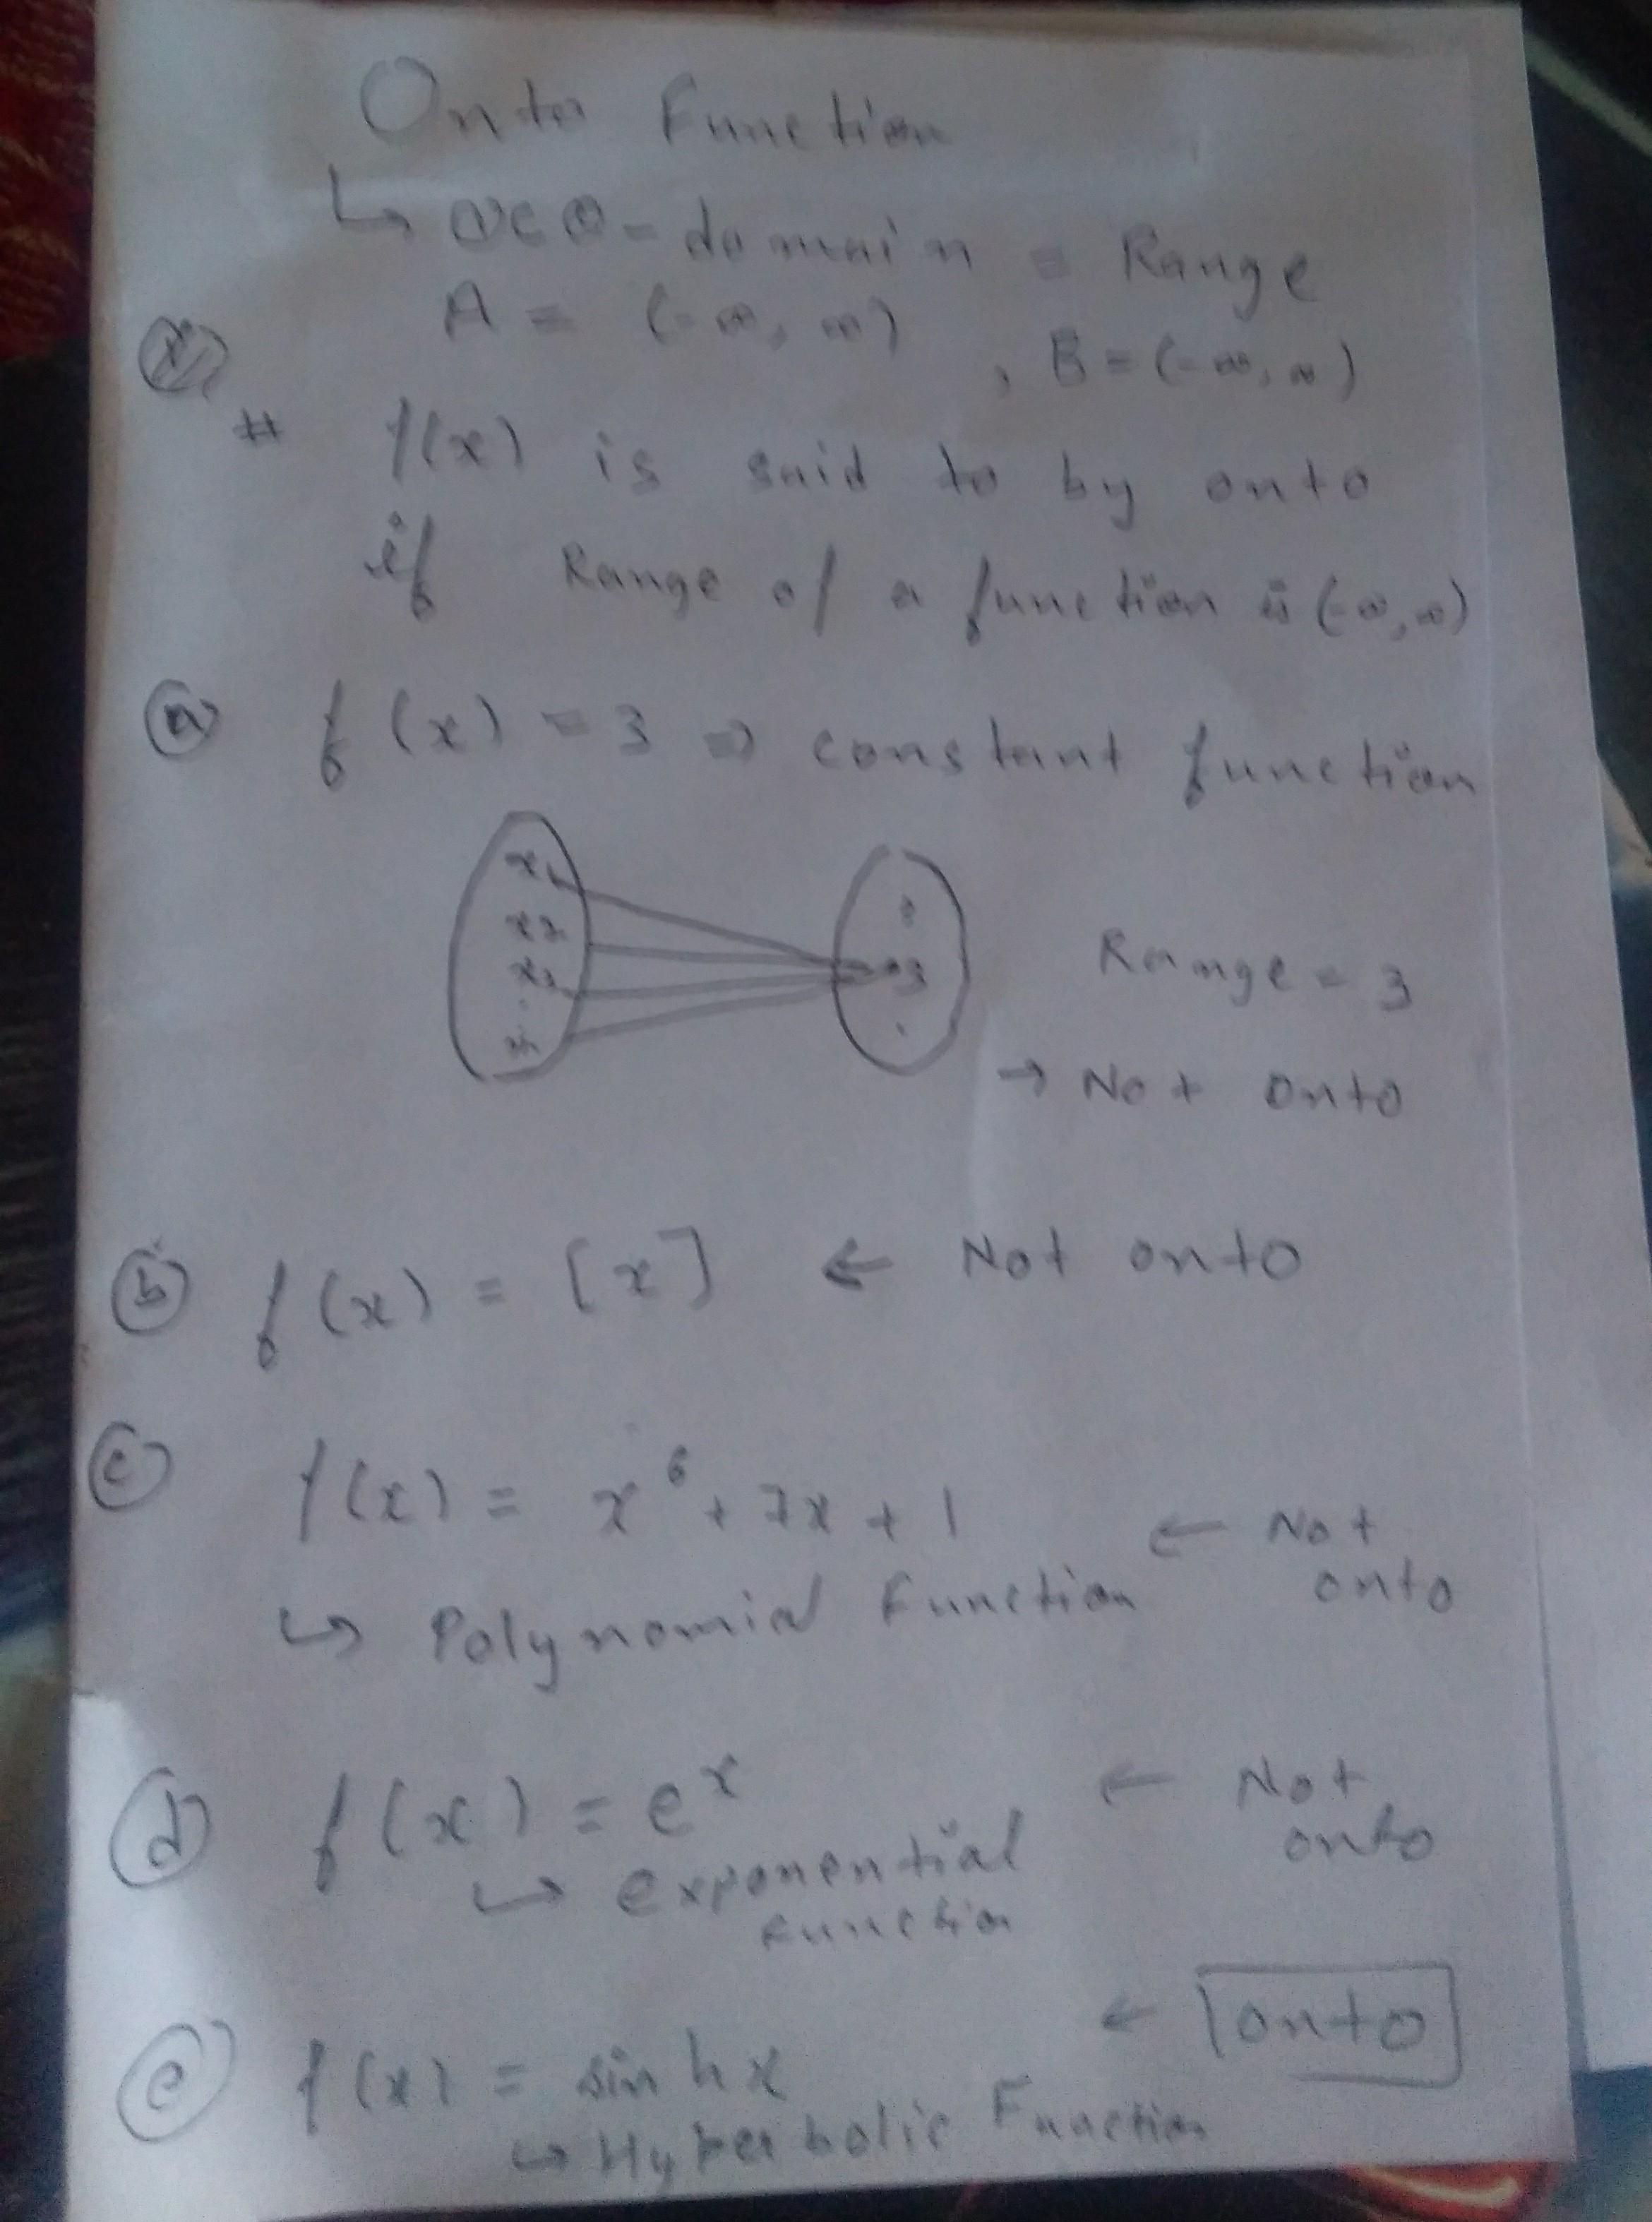 Onto Function
↳ co-domain = Range
A = (-∞, ∞) , B = (-∞, ∞)
# f(x) is said to by onto
if Range of a function is (-∞, ∞)
(a) f(x) = 3 ⇒ constant function
x1
x2
x3
.
xn
3
.
Range = 3
→ Not onto
(b) f(x) = [x] ← Not onto
(c) f(x) = x⁶ + 7x + 1 ← Not onto
↳ Polynomial Function
(d) f(x) = eˣ ← Not onto
↳ exponential
function
(e) f(x) = sin hx ← onto
↳ Hyperbolic Function